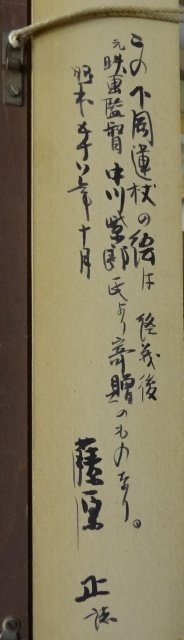 この下岡蓮杖の絵は 修養後
元映画監督 中川紫郎氏より寄贈のものなり。
昭和五十八年十月
藤原 正誌